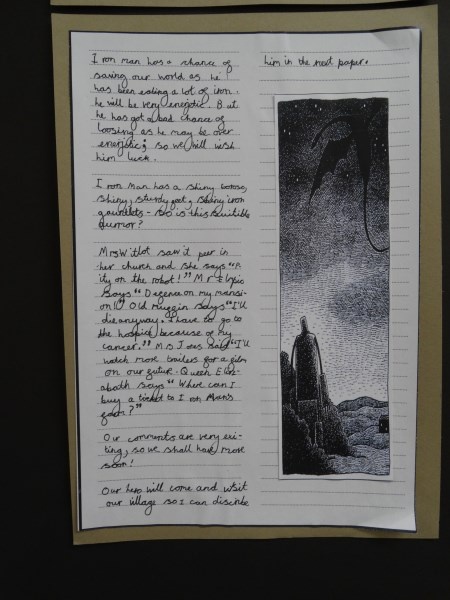 Iron man has a chance of
saving our world as he
has been eating a lot of iron.
he will be very energetic. But
he has got a bad chance of
loosing as he may be over
energetic; so we will wish
him luck.
Iron Man has a shiny torso,
shiny, sturdy feet, shiny iron
gauntlets - so is this suitible
armor?
Mrs Witlot saw it peer in
her church and she says "
ity on the robot!" Mr
says " Degence on my mansi-
on!" Old Muggin says "I'll
die anyway. I have to go to
the hospice because of my
cancer." Ms Jees said "I'll
watch more trailers for a film
on our future. Queen Eliz-
abath says " Where can I
buy a ticket to Iron Man's
"
Our comments are very exi-
ting, so we shall have more
soon!
Our hero will come and visit
our village so I can discribe
him in the next paper.